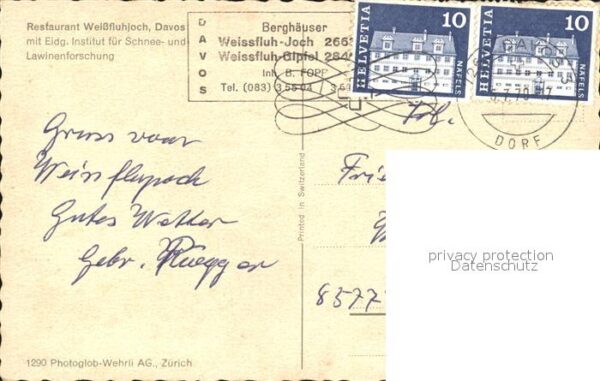 Restaurant Weißfluhjoch, Davos
mit Eidg. Institut für Schnee- und
Lawinenforschung
DAVOS
Berghäuser
Weissfluh-Joch 266
Weissfluh-Gipfel 284
Inh. B. FOPP
Tel. (083) 3 55 04
HELVETIA
10
NÄFELS
HELVETIA
10
NÄFELS
DAVOS
DORF
Gruss vom
Weissfluhjoch
Gutes Wetter
Gebr. Rüegger
Printed in Switzerland
Frl.
8577
privacy protection
Datenschutz
1290 Photoglob-Wehrli AG., Zürich